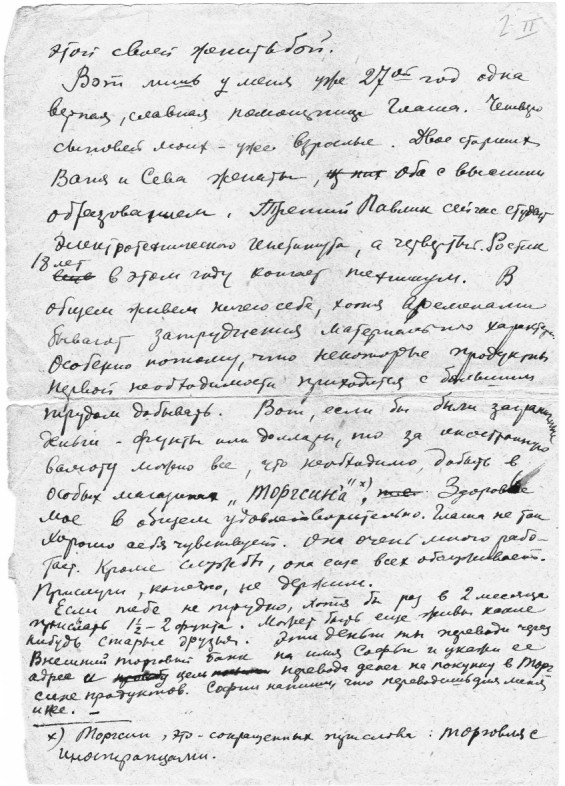 2 II
этой своей женитьбой.
Вот лишь у меня уже 27ой год одна
верная, славная помощница Глаша. Четверо
сыновей моих - уже взрослые. Двое старших
Ваня и Сева женаты, из них оба с высшим
образованием. Третий Павлик сейчас студент
Электротехнического Института, а четвертый Ростик
18 лет
в этом году кончает техникум. В
общем живем ничего себе, хотя временами
бывают затруднения материального характера.
Особенно потому, что некоторые продукты
первой необходимости приходится с большим
трудом добывать. Вот, если бы были заграничные
деньги - фунты или доллары, то за иностранную
валюту можно все, что необходимо, добыть в
особых магазинах "Торгсина" x), Здоровье
мое в общем удовлетворительно. Глаша не так
хорошо себя чувствует. Она очень много рабо-
тает. Кроме службы, она еще всех обслуживает.
Прислуги, конечно, не держим.
Если тебе не трудно, хотя бы раз в 2 месяца
присылать 1½ - 2 фунта. Может быть еще живы какие
нибудь старые друзья. Эти деньги ты переводи через
Внешний торговый банк на имя Софьи и укажи ее
адрес и цель перевода денег на покупку в Торг-
сине продуктов. Софии напиши, что переводишь для меня
и же.
x) Торгсин, это - сокращенных два слова: торговля с
иностранцами.